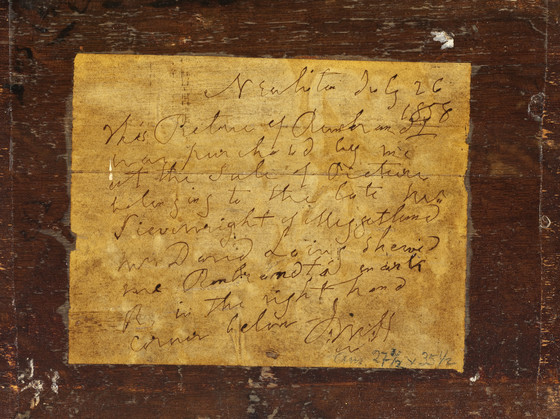 Newliston July 26
1858
This Picture of Rembrandt
was purchased by me
at the Sale of Pictures
belonging to the late Mr
Sievwright of Meggetland
Mr David Laing shewed
me Rembrandts mark
R in the right hand
corner below
27 1/2 x 35 1/2